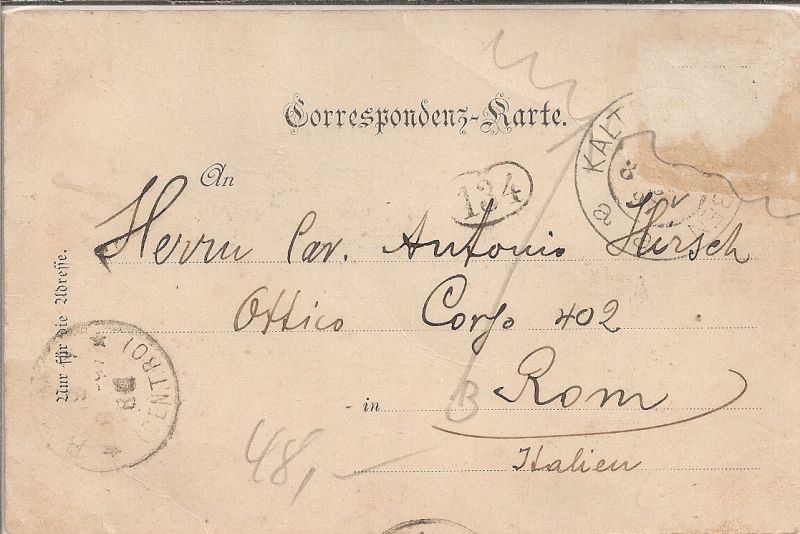 Correspondenz-Karte.
KALT
a
134
An
Herrn Cav. Antonio Hirsch
Ottico Corso 402
B
in Rom
Italien
Nur für die Adresse.
(CENTRO)
48,-